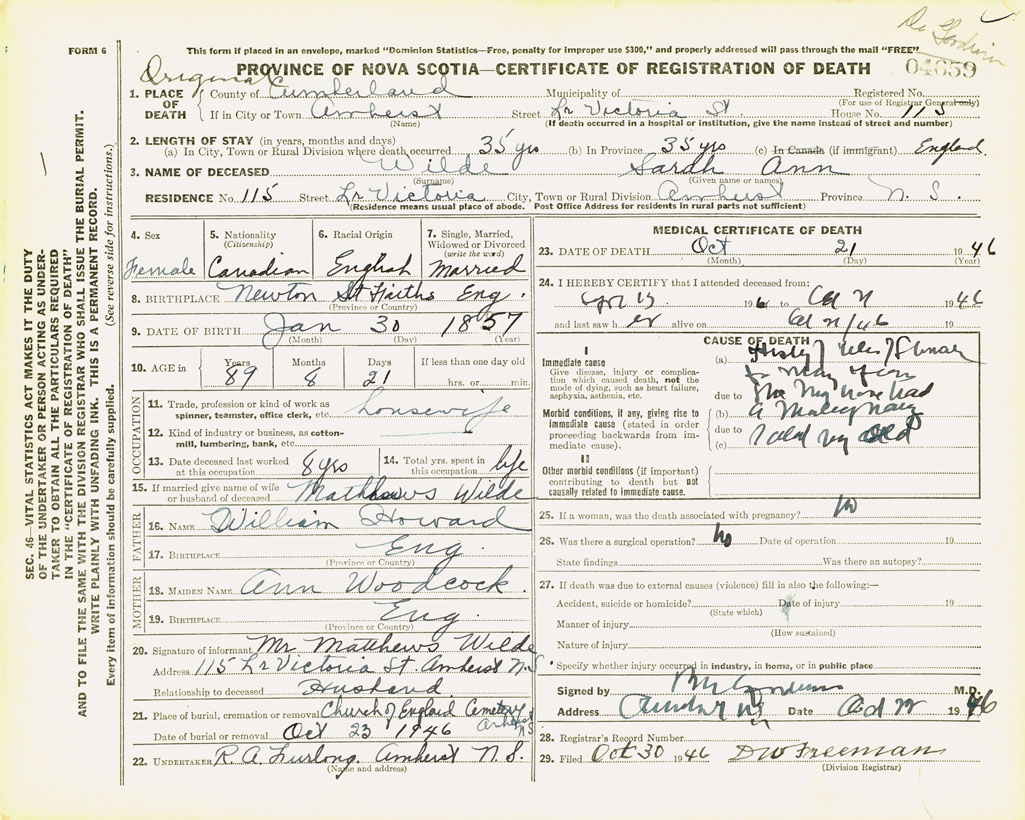 Dr Goodwin
FORM 6
This form if placed in an envelope, marked "Dominion Statistics—Free, penalty for improper use $300," and properly addressed will pass through the mail "FREE"
Original
PROVINCE OF NOVA SCOTIA—CERTIFICATE OF REGISTRATION OF DEATH
04659
1. PLACE OF DEATH
County of Cumberland Municipality of Registered No.
(For use of Registrar General only)
If in City or Town Amherst Street Lr Victoria St House No. 115
(Name) (If death occurred in a hospital or institution, give the name instead of street and number)
2. LENGTH OF STAY (in years, months and days)
(a) In City, Town or Rural Division where death occurred 35 yrs (b) In Province 35 yrs (c) In Canada (if immigrant) England.
3. NAME OF DECEASED Wilde Sarah Ann
(Surname) (Given name or names)
RESIDENCE No. 115 Street Lr Victoria City, Town or Rural Division Amherst Province N. S.
(Residence means usual place of abode. Post Office Address for residents in rural parts not sufficient)
4. Sex
Female
5. Nationality
(Citizenship)
Canadian
6. Racial Origin
English
7. Single, Married, Widowed or Divorced
(write the word)
Married
8. BIRTHPLACE Newton St Faiths Eng.
(Province or Country)
9. DATE OF BIRTH Jan 30 1857
(Month) (Day) (Year)
10. AGE in Years Months Days If less than one day old
89 8 21 hrs. or min.
OCCUPATION
11. Trade, profession or kind of work as spinner, teamster, office clerk, etc. housewife
12. Kind of industry or business, as cotton-mill, lumbering, bank, etc.
13. Date deceased last worked at this occupation 8 yrs
14. Total yrs. spent in this occupation life
15. If married give name of wife or husband of deceased Matthews Wilde
FATHER
16. NAME William Howard
17. BIRTHPLACE Eng.
(Province or Country)
MOTHER
18. MAIDEN NAME Ann Woodcock.
19. BIRTHPLACE Eng.
(Province or Country)
20. Signature of informant Mr Matthews Wilde
Address 115 Lr Victoria St Amherst N.S
Relationship to deceased Husband.
21. Place of burial, cremation or removal Church of England Cemetery Amherst N S
Date of burial or removal Oct 23 1946
22. UNDERTAKER R. A. Furlong. Amherst N. S.
(Name and address)
MEDICAL CERTIFICATE OF DEATH
23. DATE OF DEATH Oct 21 1946
(Month) (Day) (Year)
24. I HEREBY CERTIFY that I attended deceased from:
19 to 1946
and last saw her alive on 19
CAUSE OF DEATH
I
Immediate cause
Give disease, injury or complication which caused death, not the mode of dying, such as heart failure, asphyxia, asthenia, etc.
Morbid conditions, if any, giving rise to immediate cause (stated in order proceeding backwards from immediate cause).
II
Other morbid conditions (if important) contributing to death but not causally related to immediate cause.
(a)
due to
(b)
due to
(c)
25. If a woman, was the death associated with pregnancy? No
26. Was there a surgical operation? No Date of operation 19
State findings Was there an autopsy?
27. If death was due to external causes (violence) fill in also the following:—
Accident, suicide or homicide? Date of injury 19
(State which)
Manner of injury
(How sustained)
Nature of injury
Specify whether injury occurred in industry, in home, or in public place
Signed by M.D.
Address Date 1946
28. Registrar's Record Number
29. Filed Oct 30 1946 D W Freeman
(Division Registrar)
SEC. 46—VITAL STATISTICS ACT MAKES IT THE DUTY
OF THE UNDERTAKER OR PERSON ACTING AS UNDERTAKER TO OBTAIN ALL THE PARTICULARS REQUIRED
IN THE "CERTIFICATE OF REGISTRATION OF DEATH"
AND TO FILE THE SAME WITH THE DIVISION REGISTRAR WHO SHALL ISSUE THE BURIAL PERMIT.
WRITE PLAINLY WITH UNFADING INK. THIS IS A PERMANENT RECORD.
Every item of information should be carefully supplied. (See reverse side for instructions.)